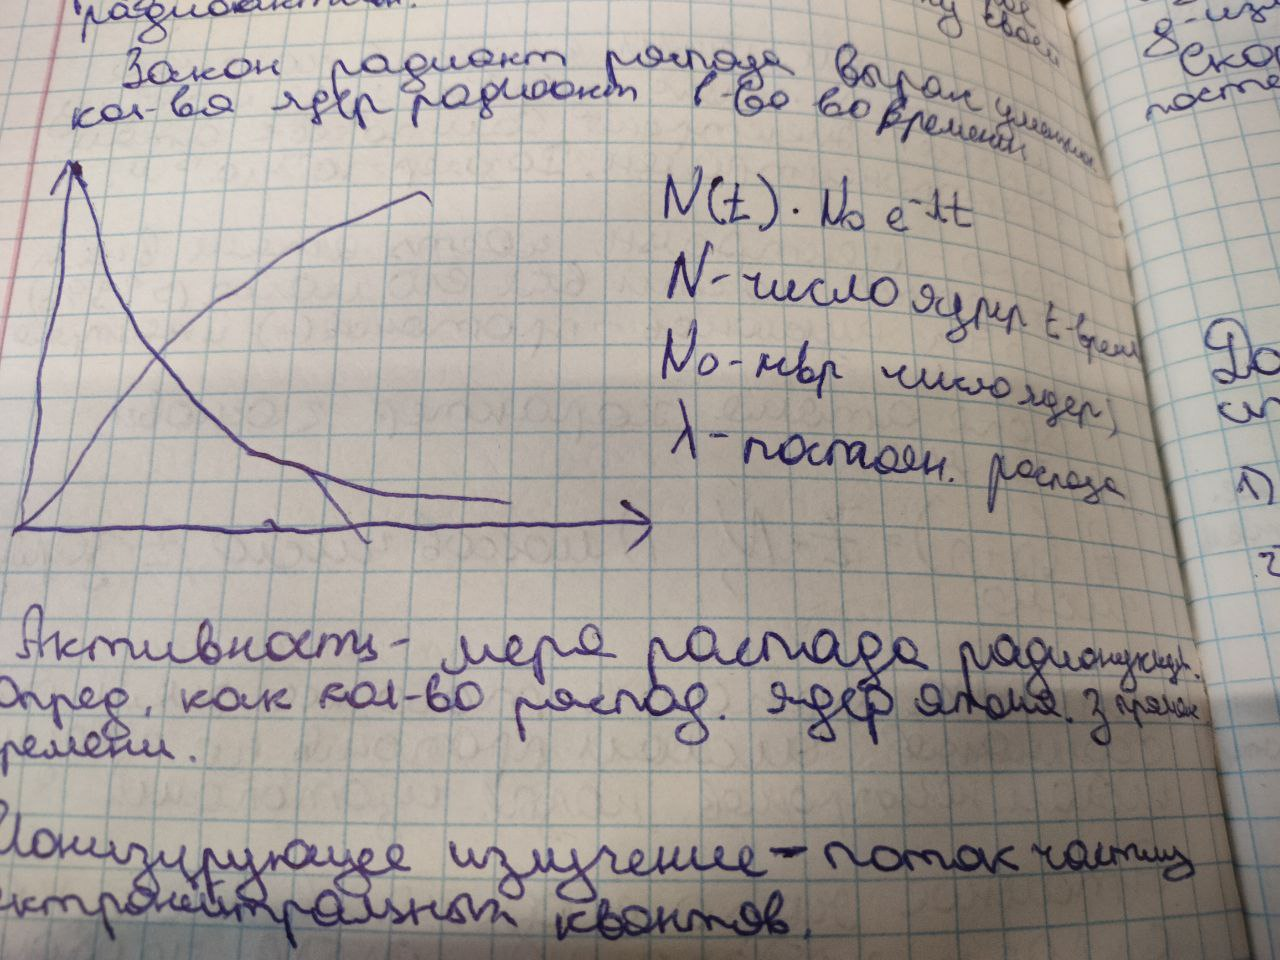 радиоактивн.
Закон радиоакт распада выраж уменьш
кол-ва ядер радиоакт в-ва во времени
N(t) . N₀ e⁻λt
N - число ядер t - время
N₀ - число ядер;
λ - постоян. распада
Активность - мера распада радионукл.
Опред. как кол-во распад. ядер атома. З
времени.
Ионизирующее излучение - поток частиц
квантов.
До
1)
2